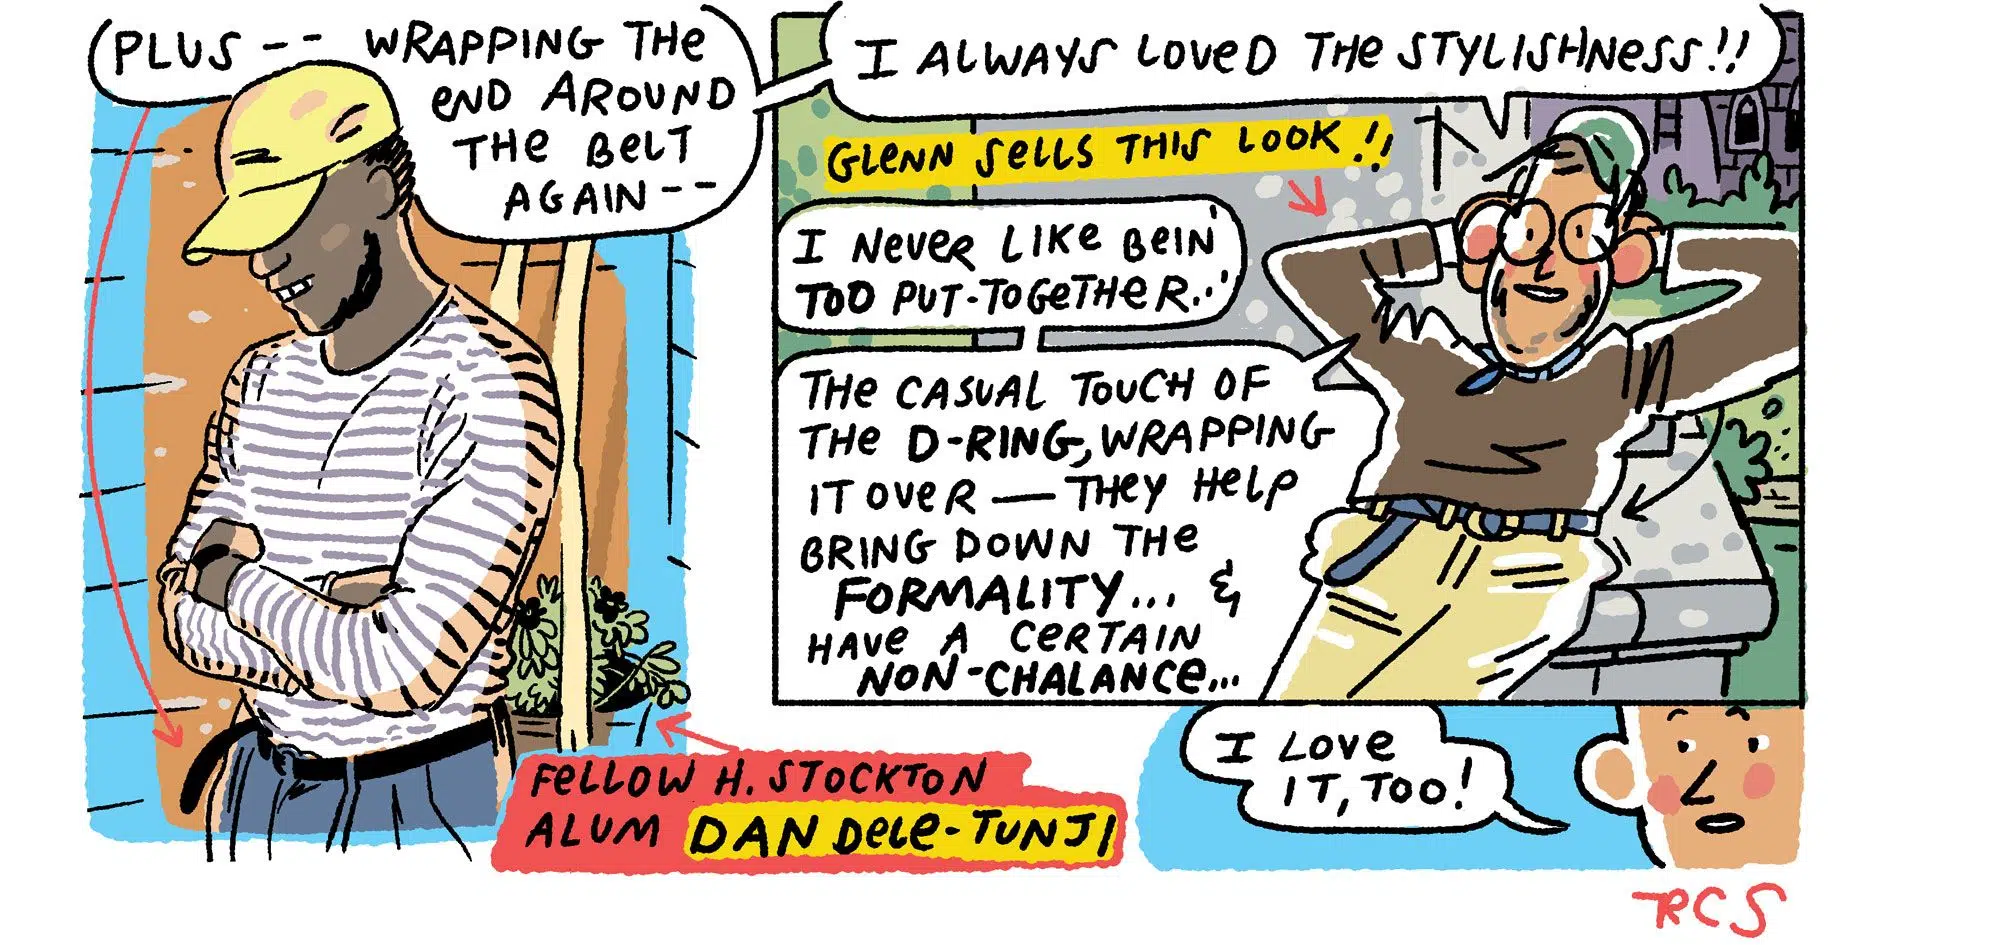 PLUS -- WRAPPING THE
END AROUND
THE BELT
AGAIN --
I ALWAYS LOVED THE STYLISHNESS!!
GLENN SELLS THIS LOOK!!
I NEVER LIKE BEIN'
TOO PUT-TOGETHER..'
THE CASUAL TOUCH OF
THE D-RING, WRAPPING
IT OVER — THEY HELP
BRING DOWN THE
FORMALITY... &
HAVE A CERTAIN
NON-CHALANCE...
FELLOW H. STOCKTON
ALUM DAN DELE-TUNJI
I LOVE
IT, TOO!
RCS